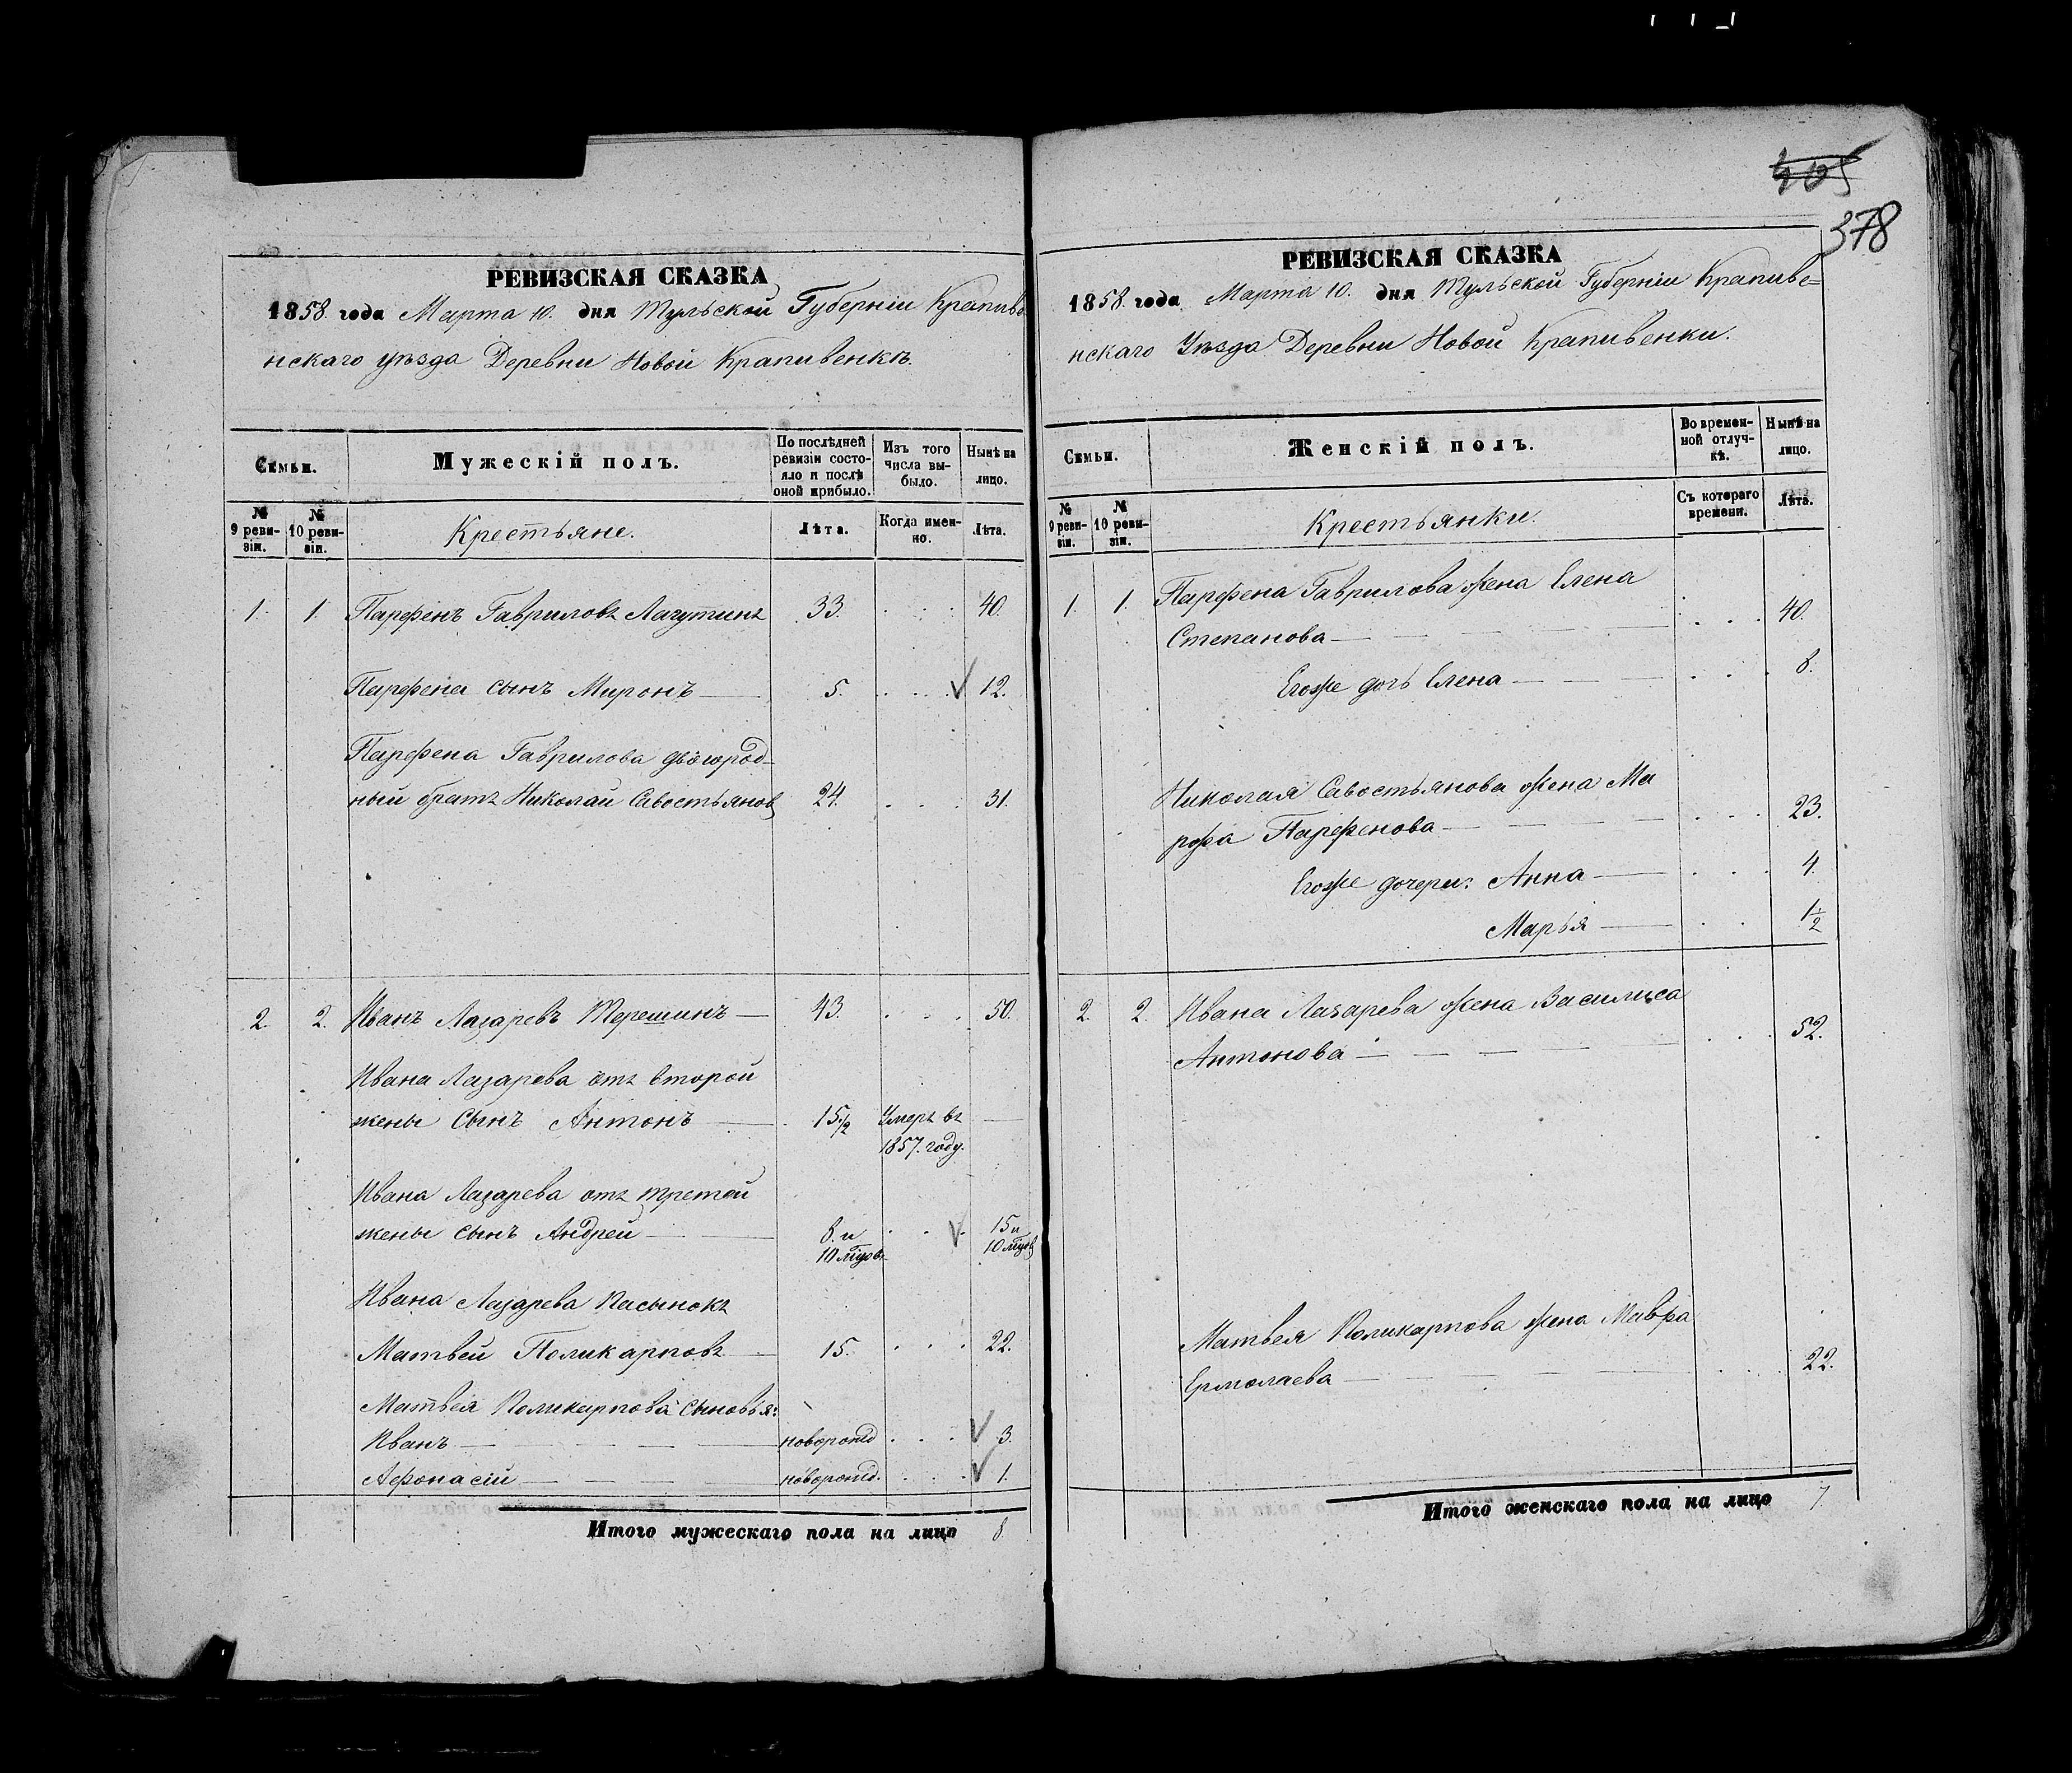 405
378
РЕВИЗСКАЯ СКАЗКА
1858. года Марта 10. дня Тульской Губерніи Крапиве
нскаго уѣзда Деревни Новой Крапивенкѣ.
Семьи.
Мужескій полъ.
По послѣдней ревизіи состояло и послѣ оной прибыло.
Изъ того числа выбыло.
Нынѣ на лицо.
№ 9 ревизіи.
№ 10 ревизіи.
Крестьяне.
Лѣта.
Когда именно.
Лѣта.
1. 1. Парфенъ Гавриловъ Лагутинъ 33. 40.
Парфена сынъ Миронъ 5. √ 12.
Парфена Гаврилова двоюрод-
ный братъ Николай Савостьяновъ 24. 31.
2. 2. Иванъ Лазаревъ Терешинъ 43. 50.
Ивана Лазарева отъ второй
жены сынъ Антонъ 15 1/2 Умеръ въ
1857. году.
Ивана Лазарева отъ третей
жены сынъ Андрей 8. и √ 15 и
10 мѣцовъ 10 мѣцовъ
Ивана Лазарева пасынокъ
Матвей Поликарповъ 15. 22.
Матвея Поликарпова сыновья:
Иванъ новорожд √ 3.
Афонасій новорожд. √ 1.
Итого мужескаго пола на лицо 8.
РЕВИЗСКАЯ СКАЗКА
1858. года Марта 10. дня Тульской Губерніи Крапиве=
нскаго Уѣзда Деревни Новой Крапивенки.
Семьи.
Женскій полъ.
Во временной отлучкѣ.
Нынѣ на лицо.
№ 9 ревизіи.
№ 10 ревизіи.
Крестьянки.
Съ котораго времени.
Лѣта.
1. 1. Парфена Гаврилова жена Елена
Степанова 40.
Егоже дочь Елена 8.
Николая Савостьянова жена Ма
рфа Парфенова 23.
Егоже дочери: Анна 4.
Марья 1 1/2
2. 2. Ивана Лазарева жена Василиса
Антонова 52.
Матвея Поликарпова жена Мавра
Ермолаева 22.
Итого женскаго пола на лицо 7